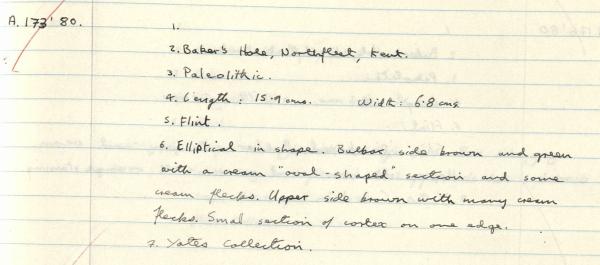 A.173'80.
1.
2. Baker's Hole, Northfleet, Kent.
3. Paleolithic.
4. Length: 15.9 cms. Width: 6.8 cms
5. Flint.
6. Elliptical in shape. Bulbar side brown and green
with a cream "oval-shaped" section and some
cream flecks. Upper side brown with many cream
flecks. Small section of cortex on one edge.
7. Yates Collection.